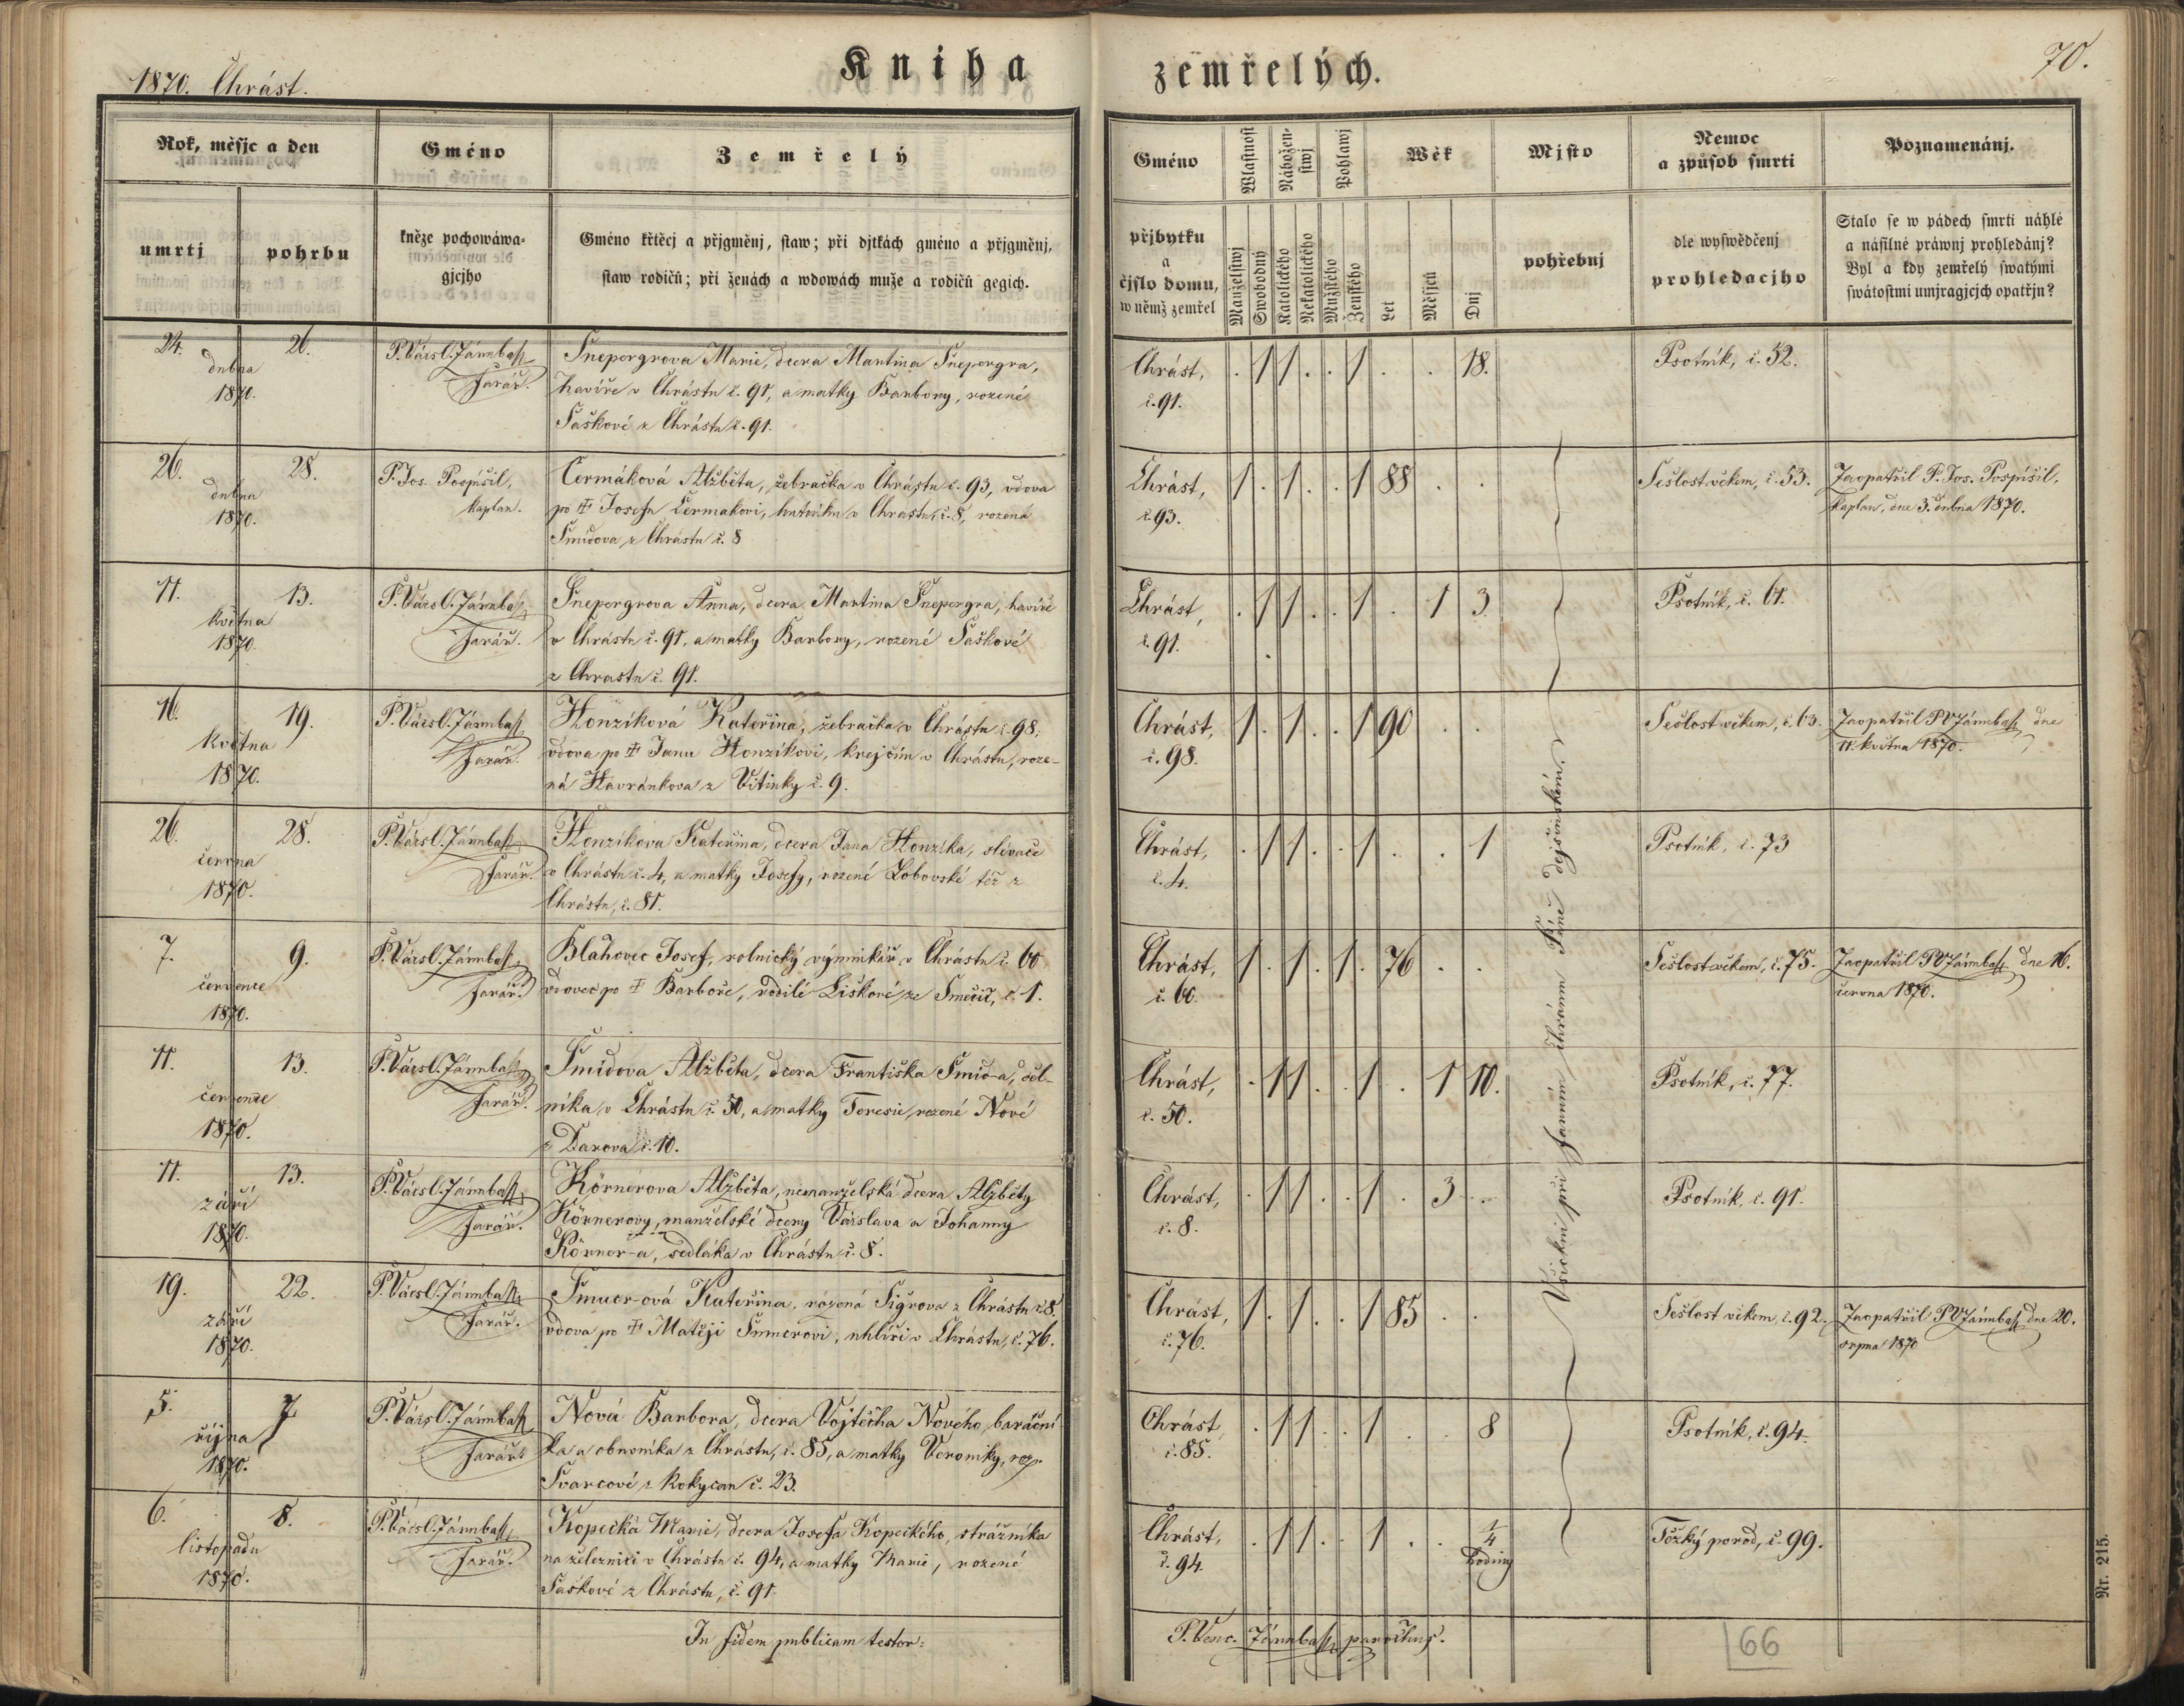 Kniha zemřelých.
1870. Chrást.
70.
Rok, měsjc a den
Gméno
Zemřelý
Gméno
Wlastnost
Nábožen-
stwj
Pohlawj
Wěk
Mjsto
Nemoc
a způsob smrti
Poznamenánj.
umrtj
pohrbu
kněze pochowáwa-
gjcjho
Gméno křtěcj a přjgměnj, staw; při djtkách gméno a přjgměnj,
staw rodičů; při ženách a wdowách muže a rodičů gegich.
přjbytku
a
čjslo domu,
w němž zemřel
Manželstwj
Swobodný
Katolického
Nekatolického
Mužského
Ženského
Let
Měsjců
Dnj
pohřebnj
dle wyswědčenj
prohledacjho
Stalo se w pádech smrti náhlé
a násilné práwnj prohledánj?
Byl a kdy zemřelý swatými
swátostmi umjragjcjch opatřjn?
24. 26.
dubna
1870.
P. Vácsl. Jármbaſz
Farář.
Šnepergrova Marie, dcera Martina Šnepergra,
havíře v Chrástu č. 91, a matky Barbory, rozené
Saškové z Chrástu č. 91.
Chrást,
č. 91.
. 1 1 . . 1 . . 18.
Psotník, č. 52.
26. 28.
dubna
1870.
P. Jos. Pospíšil,
kaplan.
Čermáková Alžběta, žebračka v Chrástu č. 93, vdova
po † Josefu Čermakovi, v Chrástu, č. 8, rozená
Šmidova z Chrástu č. 8
Chrást,
č. 93.
1 . 1 . . 1 88 . .
Sešlost věkem, č. 53.
Zaopatřil P. Jos. Pospíšil,
kaplan, dne 3. dubna 1870.
11. 13.
května
1870.
P. Vácsl. Jármbaſz
Farář.
Šnepergrova Anna, dcera Martina Šnepergra, havíře
v Chrástu č. 91, a matky Barbory, rozené Saškové
z Chrastu č. 91.
Chrást,
č. 91.
. 1 1 . . 1 . 1 3
Psotník, č. 61.
16. 19.
května
1870.
P. Vácsl. Jármbaſz
Farář.
Honzíková Kateřina, žebračka v Chrástu č. 98,
vdova po † Janu Honzíkovi, krejčím v Chrástu, roze-
ná Havránkova z Vitinky č. 9.
Chrást,
č. 98.
1 . 1 . . 1 90 . .
Sešlost věkem, č. 63.
Zaopatřil P V Jármbaſz dne
11. května 1870.
26. 28.
června
1870.
P. Vácsl. Jármbaſz
Farář.
Honzíkova Kateřina, dcera Jana Honzíka, slévače
v Chrástu č. 4, a matky Josefy, rozené Lobovské též z
Chrástu, č. 81.
Chrást,
č. 4.
. 1 1 . . 1 . . 1
Psotník, č. 73
7. 9.
července
1870.
P. Vácsl. Jármbaſz
Farář.
Blahovec Josef, rolnický výminkář v Chrástu č. 60
vdovec po † Barboře, rodilé Liškové ze Smečic, č. 1.
Chrást,
č. 60.
1 . 1 . 1 . 76 . .
Sešlost věkem, č. 75.
Zaopatřil P V Jármbaſz dne 16.
června 1870.
11. 13.
července
1870.
P. Vácsl. Jármbaſz
Farář.
Šmidova Alžběta, dcera Františka Šmid-a, děl-
níka v Chrástu č. 50, a matky Teresie, rozené Nové
z Darova č. 10.
Chrást,
č. 50.
. 1 1 . . 1 . 1 10.
Psotník, č. 77.
11. 13.
září
1870.
P. Vácsl. Jármbaſz
Farář.
Körnerova Alžběta, nemanželská dcera Alžběty
Körnerovy, manželské dcery Vácslava a Johanny
Körner-a, sedláka v Chrástu č. 8.
Chrást,
č. 8.
. 1 1 . . 1 . 3 .
Psotník, č. 91.
19. 22.
září
1870.
P. Vácsl. Jármbaſz
Farář.
Šmucr-ová Kateřina, rozená Sigrova z Chrástu č. 8.
vdova po † Matěji Šmucrovi, uhlíři v Chrástu, č. 76.
Chrást,
č. 76.
1 . 1 . . 1 85 . .
Sešlost věkem, č. 92.
Zaopatřil P V Jármbaſz dne 20.
srpna 1870
5. 7.
října
1870.
P. Vácsl. Jármbaſz
Farář.
Nová Barbora, dcera Vojtěcha Nového, baráční
ka a obuvníka z Chrástu, č. 85, a matky Veroniky, roz.
Švarcové z Rokycan č. 23.
Chrást,
č. 85.
. 1 1 . . 1 . . 8
Psotník, č. 94.
6. 8.
listopadu
1870.
P. Vácsl. Jármbaſz
Farář.
Kopecká Marie, dcera Josefa Kopeckého, strážníka
na železnici v Chrástu č. 94, a matky Marie, rozené
Saškové z Chrástu, č. 91
Chrást,
č. 94.
. 1 1 . . 1 . . 1/4
hodiny
Těžký porod, č. 99.
Všickni při farním chrámu Páně dejšinském.
In fidem publicam testor:
P. Venc. Jármbaſz, parochus.
66
Nr. 215.